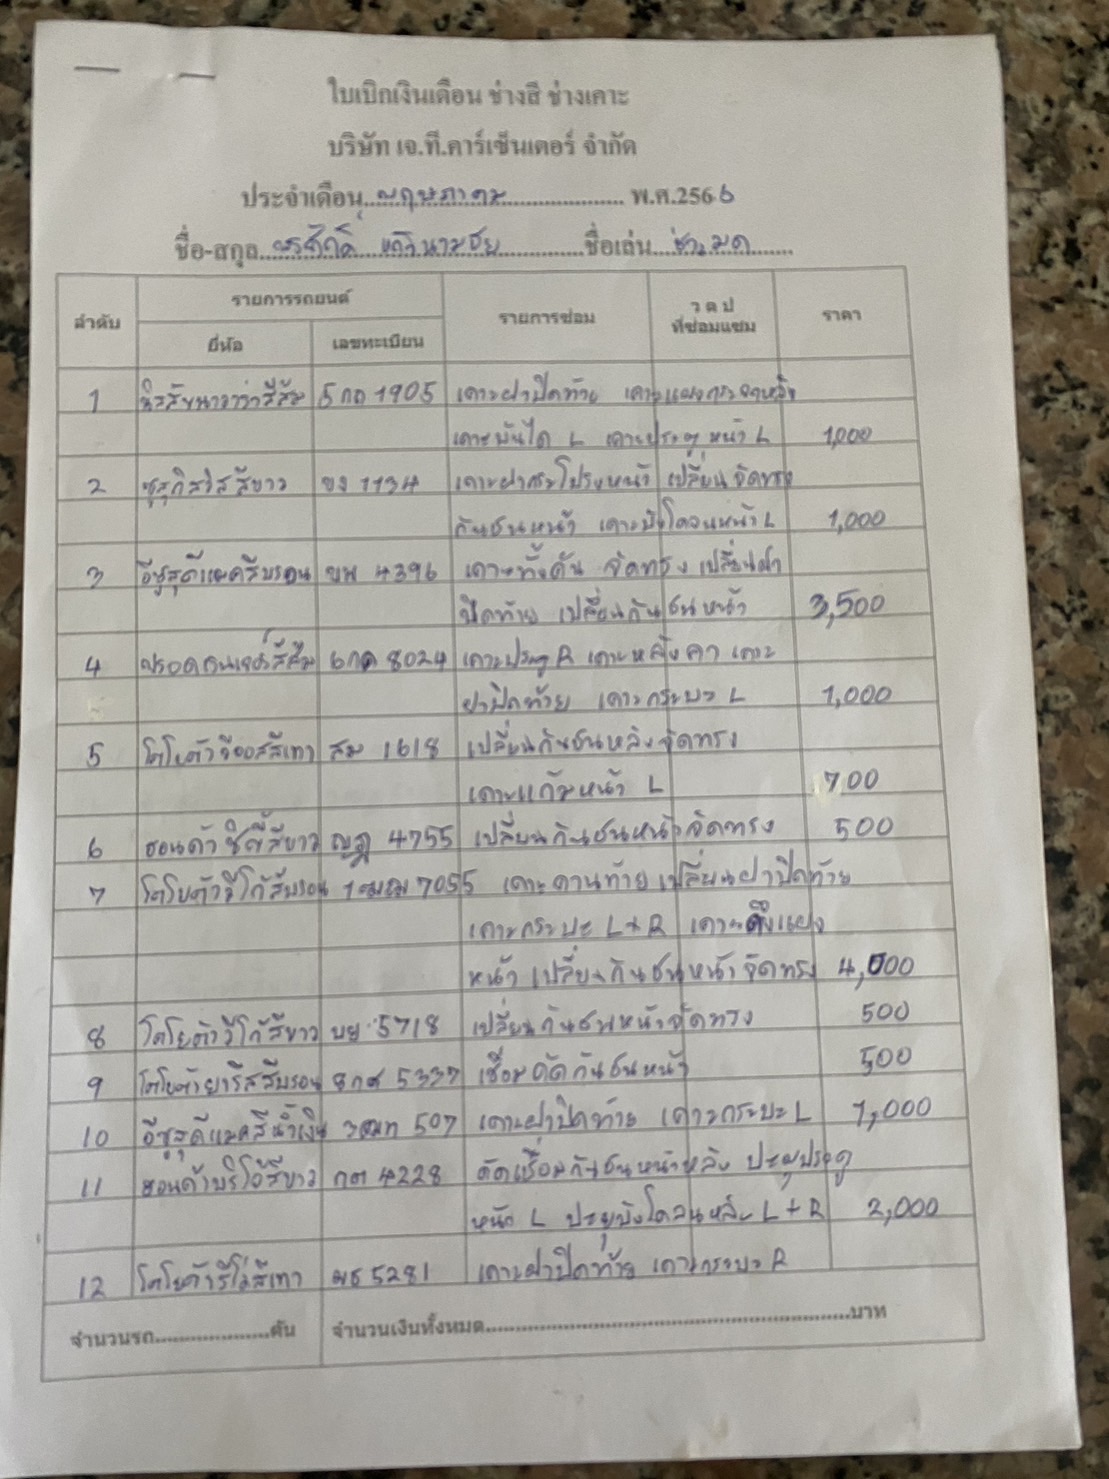 ใบเบิกเงินเดือน ช่างสี ช่างเคาะ
บริษัท เจ.ที.คาร์เซ็นเตอร์ จำกัด
ประจำเดือน พฤษภาคม พ.ศ.2566
ชื่อ-สกุล ชื่อเล่น ช่างมด
ลำดับ รายการรถยนต์ รายการซ่อม ว ด ป ที่ซ่อมแซม ราคา
ยี่ห้อ เลขทะเบียน
1 นิสสันนาวาร่าสีส้ม 5 กถ 1905 เคาะฝาปิดท้าย เคาะแผงกระจกหลัง
เคาะบันได L เคาะประตู หน้า L 1,000
2 ซูซุกิสวิสสีขาว ขง 1134 เคาะฝากระโปรงหน้า เปลี่ยน จัดทรง
กันชนหน้า เคาะบังโคลนหน้า L 1,000
3 อีซูสุดีแมคสีบรอน ขพ 4396 เคาะทั้งคัน จัดทรง เปลี่ยนฝา
ปิดท้าย เปลี่ยนกันชนหน้า 3,500
4 สีส้ม 6กด 8024 เคาะประตู R เคาะหลังคา เคาะ
ฝาปิดท้าย เคาะกระบะ L 1,000
5 โตโยต้าวีออสสีเทา สม 1618 เปลี่ยนกันชนหลังจัดทรง
เคาะแก้มหน้า L 700
6 ฮอนด้า ซิตี้สีขาว ญฎ 4755 เปลี่ยนกันชนหน้าจัดทรง 500
7 โตโยต้าวีโก้สีบรอน 1ฒฌ 7055 เคาะคานท้าย เปลี่ยนฝาปิดท้าย
เคาะกระบะ L+R เคาะดึงแผง
หน้า เปลี่ยนกันชนหน้าจัดทรง 4,000
8 โตโยต้าวีโก้สีขาว บย 5718 เปลี่ยนกันชนหน้าจัดทรง 500
9 โตโยต้ายาริสสีบรอน 8กศ 5337 เชื่อมดัดกันชนหน้า 500
10 อีซูสุดีแมคสีน้ำเงิน 507 เคาะฝาปิดท้าย เคาะกระบะ L 1,000
11 ฮอนด้าบริโอ้สีขาว กต 4228 ดัดเชื่อมกันชนหน้าหลัง ปะผุประตู
หน้า L ปะผุบังโคลนหลัง L+R 2,000
12 โตโยต้ารีโว่สีเทา ผธ 5281 เคาะฝาปิดท้าย เคาะกระบะ R
จำนวนรถ....................คัน จำนวนเงินทั้งหมด....................บาท